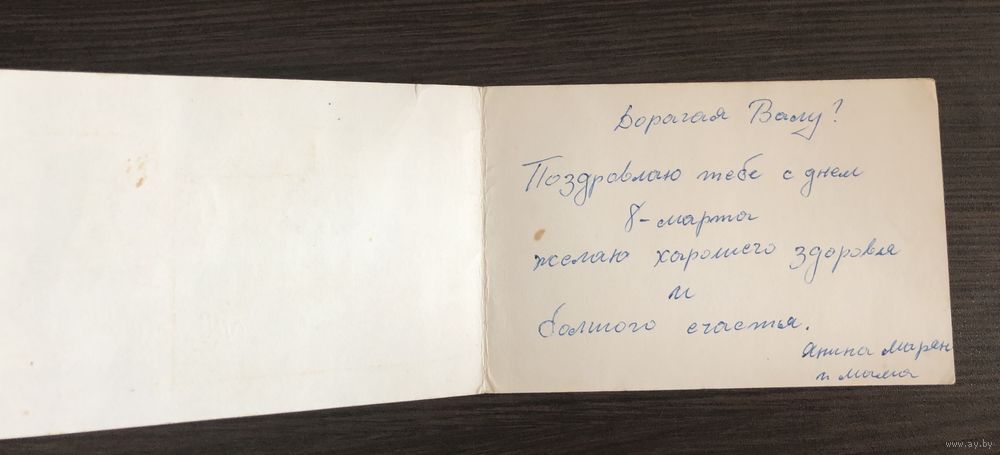 Дорагая Валу?
Поздровлаю тебе с днем
8-марта
желаю харошего здоровля
и
болшого счастья.
Анипа Марян
и мама
www.ay.by